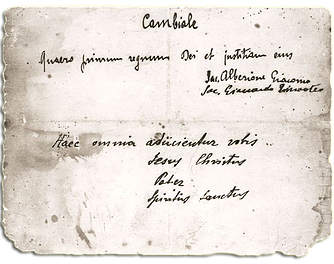 Cambiale
Quaero primum regnum Dei et justitiam eius
Sac. Alberione Giacomo
Sac. Giaccardo Timoteo
Haec omnia adiicientur vobis
Jesus Christus
Pater
Spiritus Sanctus